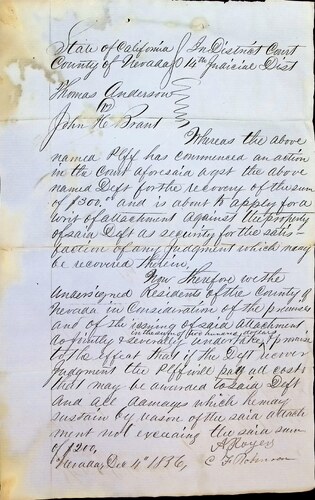 State of California } In District Court
County of Nevada } 14th Judicial Dist
Thomas Anderson
vs
John H. Brant
Whereas the above
named Plff has commenced an action
in the Court aforesaid agst the above
named Deft for the recovery of the sum
of $300.00 and is about to apply for a
writ of attachment against the property
of said Deft as security for the satis-
faction of any Judgment which may
be recovered therein,
Now therefore we the
undersigned Residents of the County of
Nevada in Consideration of the premises
and of the issuing of said attachment
do jointly & severally undertake & promise
in the sum of two hundred dollars
to the effect that if the Deft recover
Judgment the Plff will pay all costs
that may be awarded to said Deft
and all damages which he may
sustain by reason of the said attach
ment not exceeding the said sum
of $200,
Nevada, Dec 4th 1856,